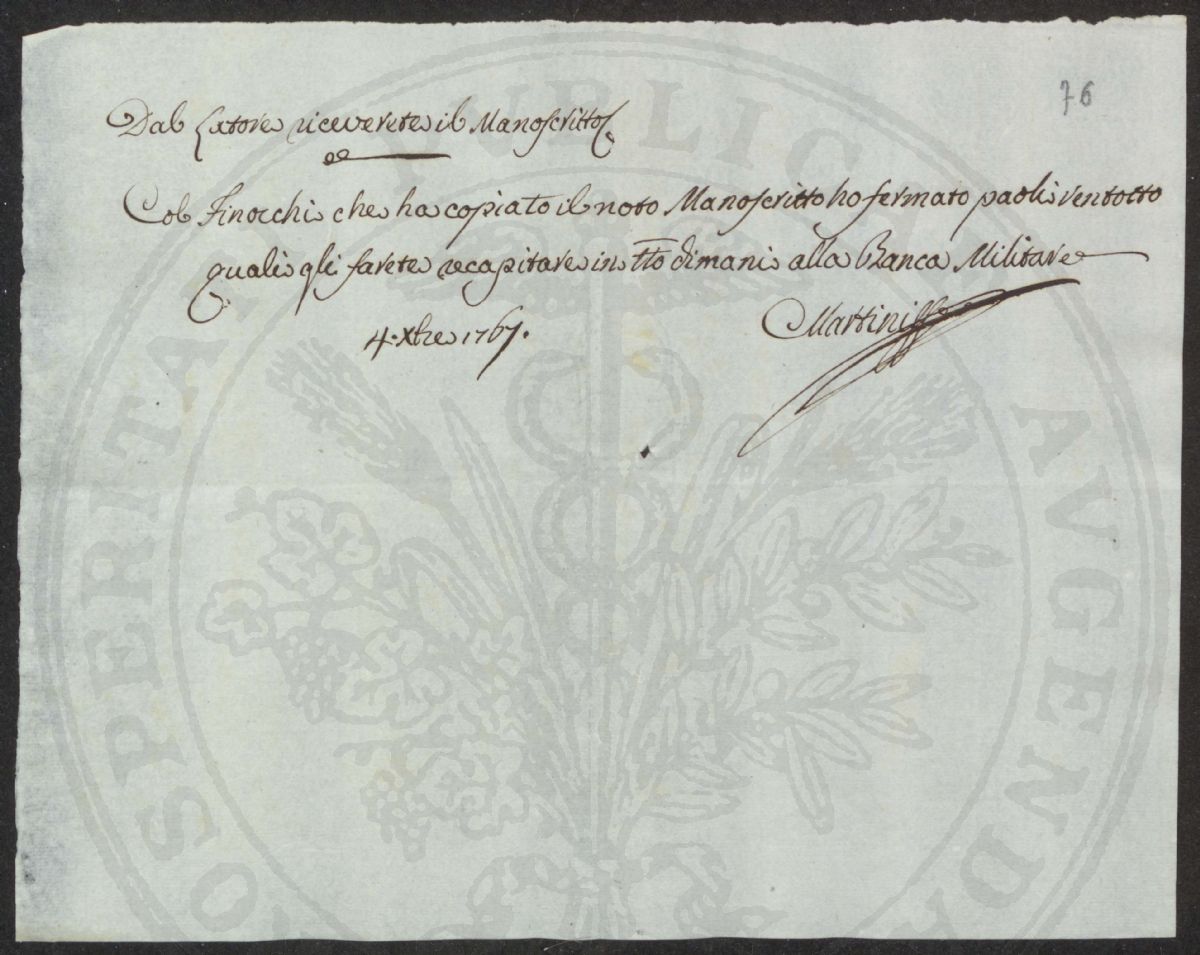 76
Dal Latore riceverete il Manoscritto
Col Finocchi che ha copiato il noto Manoscritto ho fermato paoli ventotto
quali gli farete recapitare in tto dimani alla Banca Militare
4. Xbre 1767.
Martini
PVBLICA AVGENDA
PROSPERITA